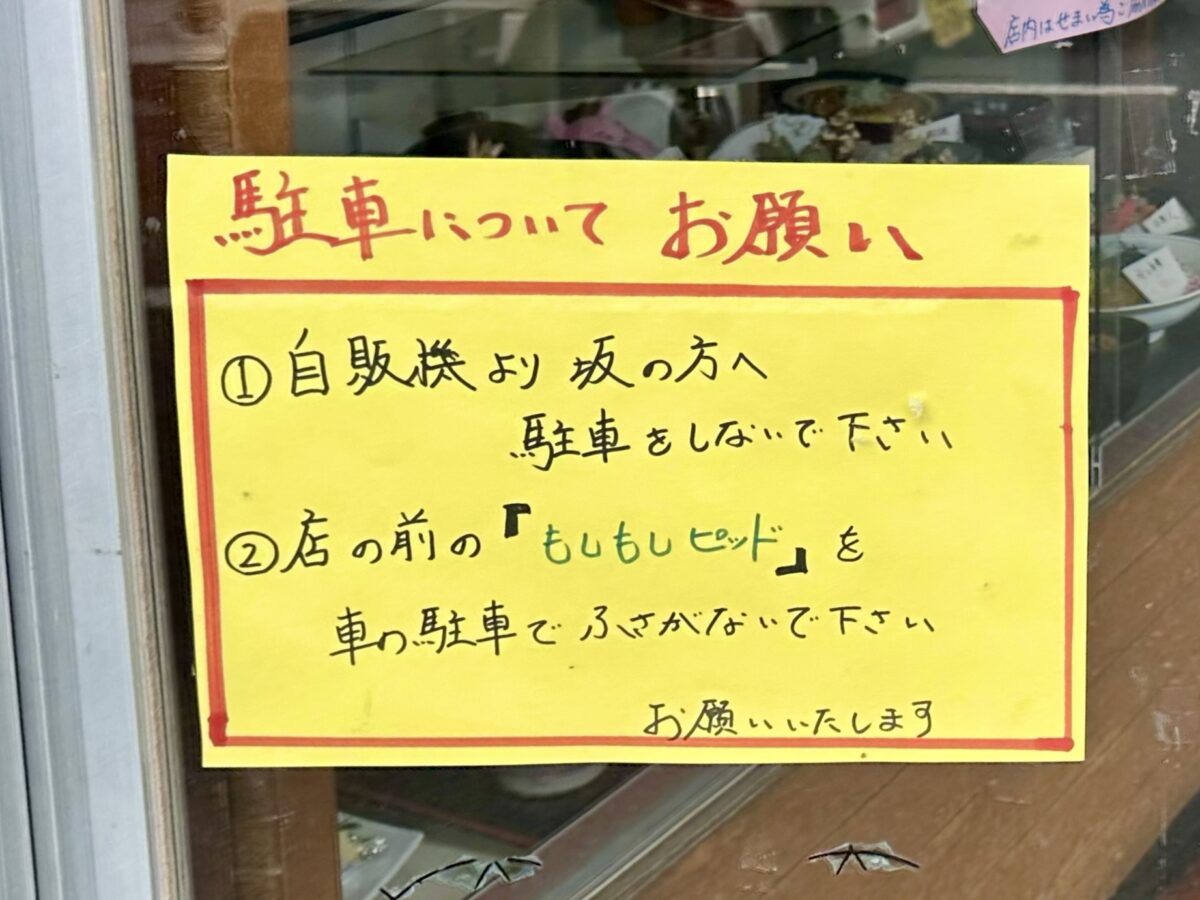 店内はせまい為ご
駐車について お願い
①自販機より 坂の方へ
駐車をしないで下さい
②店の前の『もしもしピッド』を
車の駐車で ふさがないで下さい
お願いいたします